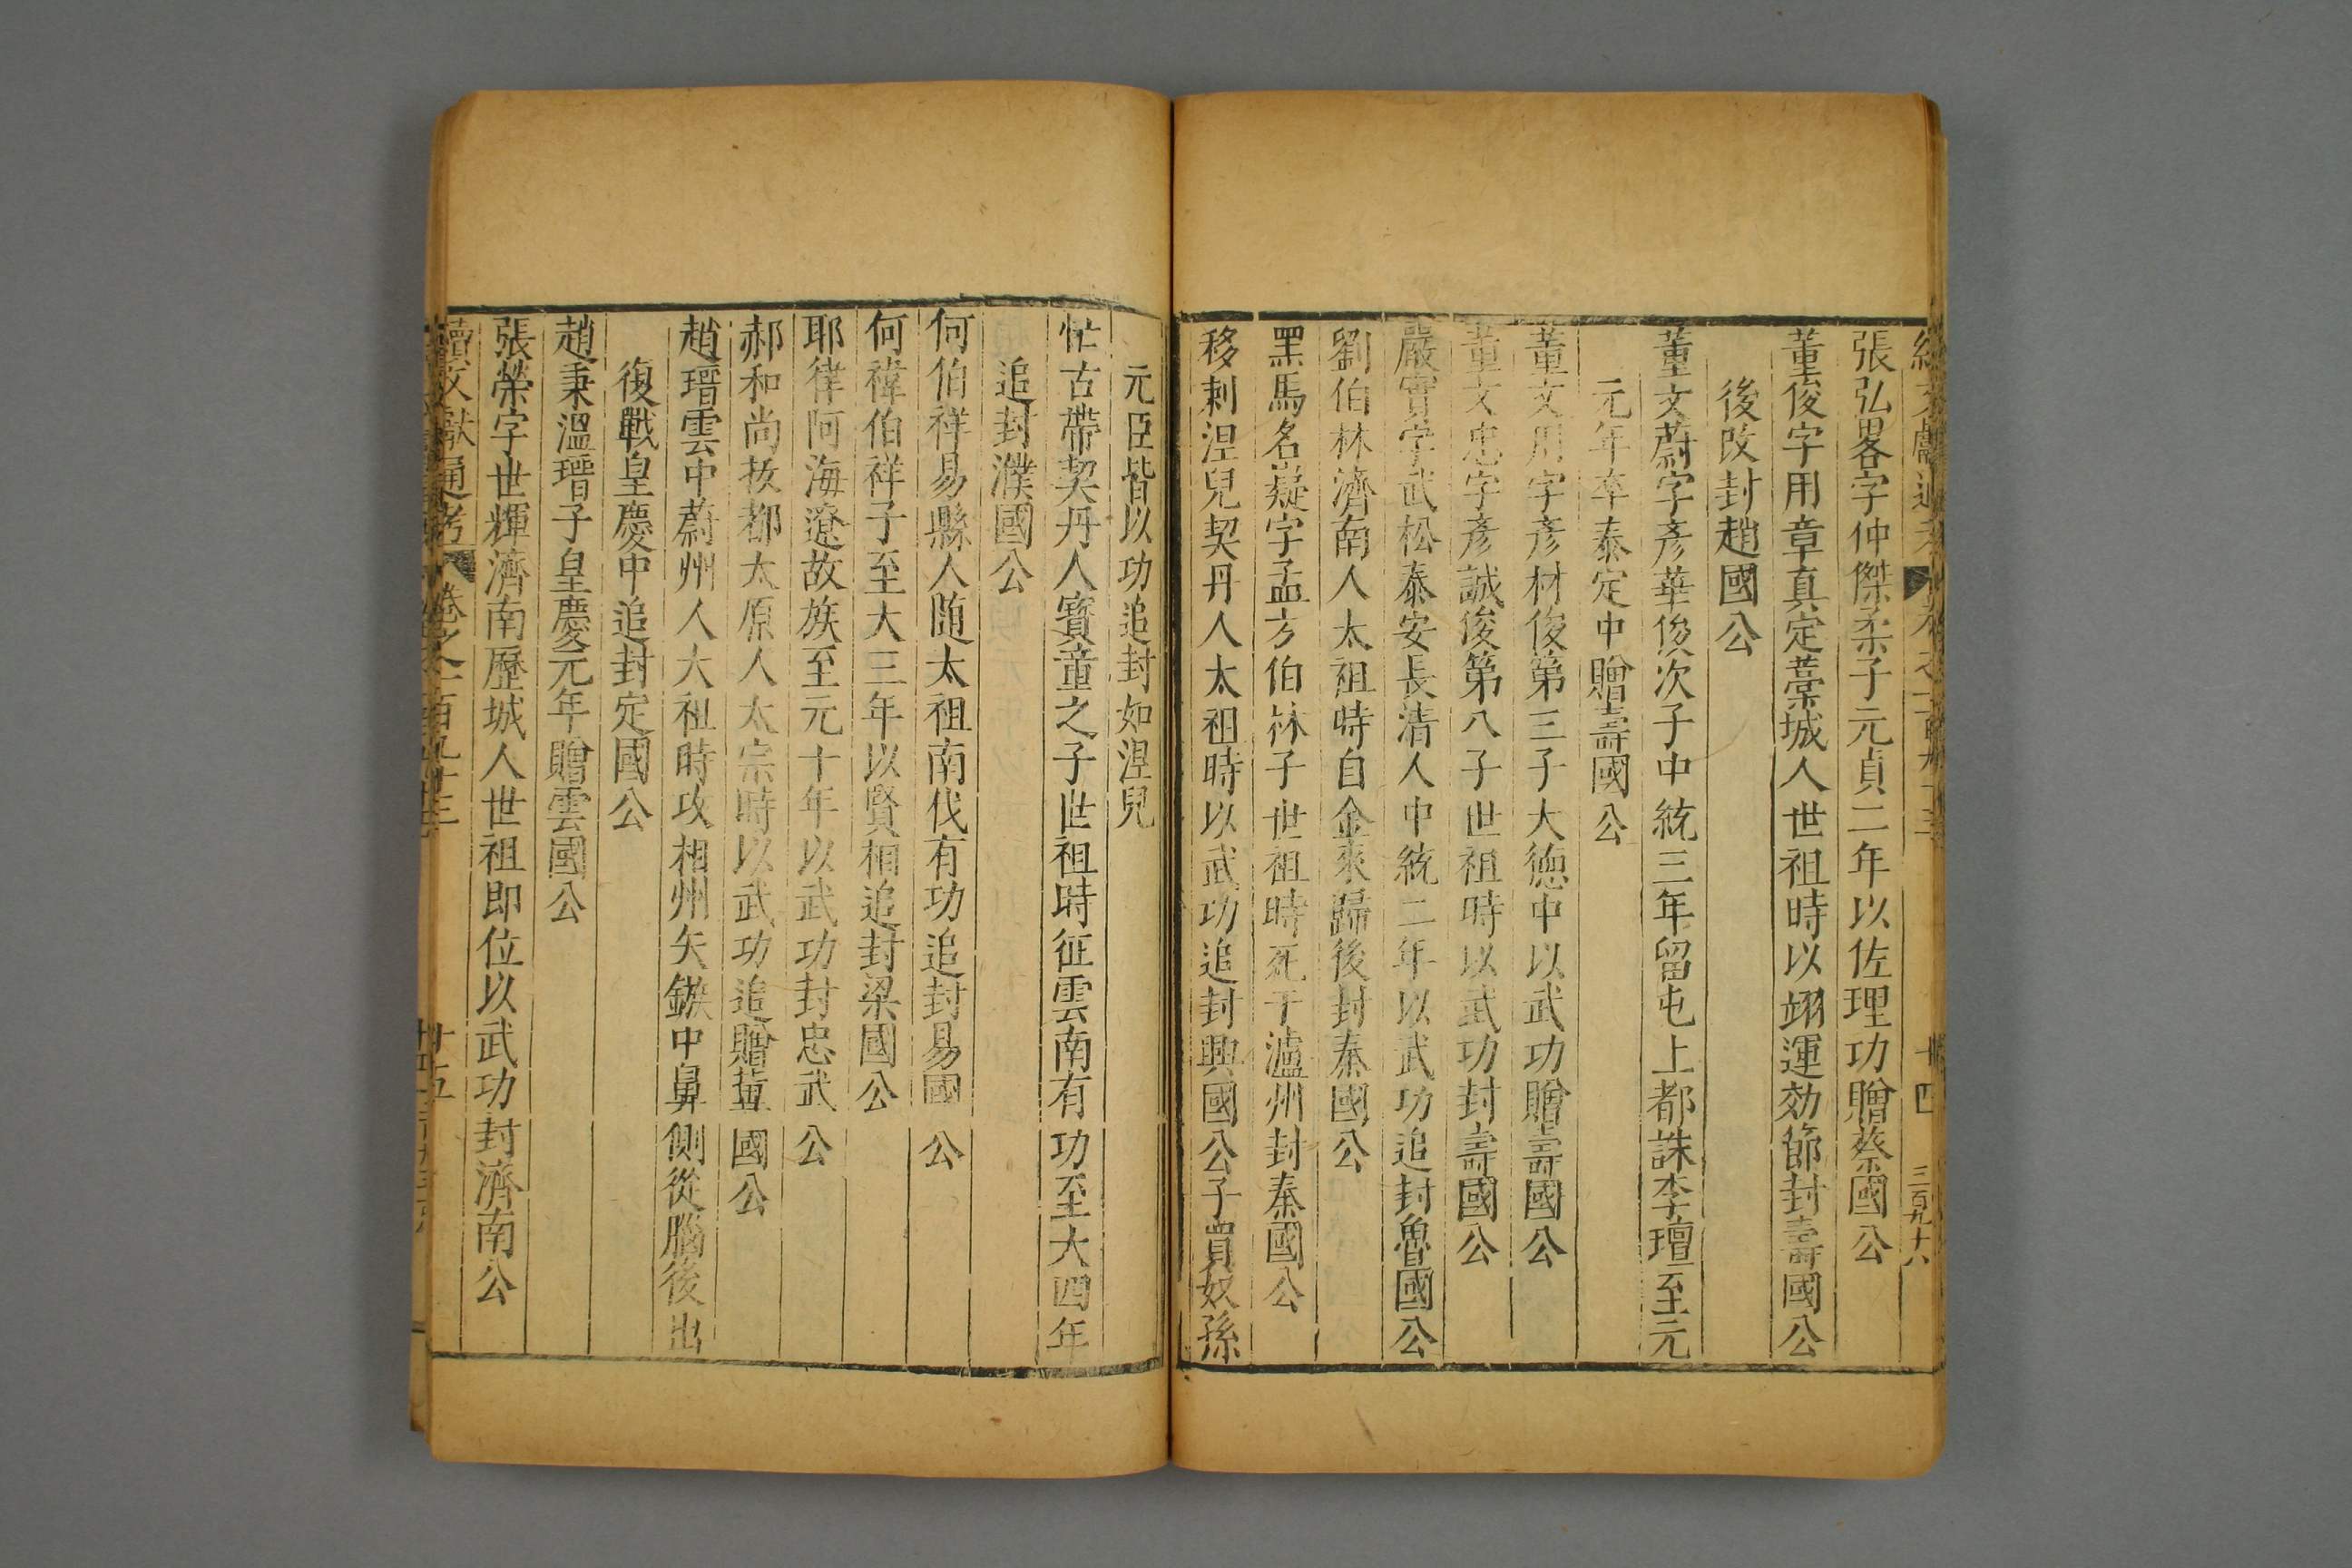 張弘畧字仲傑柔子元貞二年以佐理功贈蔡國公
董俊字用章真定藁城人世祖時以翊運効節封壽國公
後改封趙國公
董文蔚字彥華俊次子中統三年留屯上都誅李璮至元
元年卒泰定中贈壽國公
董文用字彥材俊第三子大德中以武功贈壽國公
董文忠字彥誠俊第八子世祖時以武功封壽國公
嚴實字武松泰安長清人中統二年以武功追封魯國公
劉伯林濟南人太祖時自金來歸後封秦國公
黑馬名嶷字孟方伯林子世祖時死于瀘州封秦國公
移剌涅兒契丹人太祖時以武功追封興國公子買奴孫
元臣皆以功追封如涅兒
忙古帶契丹人寶童之子世祖時征雲南有功至大四年
追封濮國公
何伯祥易縣人隨太祖南伐有功追封易國公
何褘伯祥子至大三年以賢相追封梁國公
耶律阿海遼故族至元十年以武功封忠武公
郝和尚拔都太原人太宗時以武功追贈冀國公
趙瑨雲中蔚州人大祖時攻相州矢鏃中鼻側從腦後出
復戰皇慶中追封定國公
趙秉溫瑨子皇慶元年贈雲國公
張榮字世輝濟南歷城人世祖即位以武功封濟南公
續文獻通考 卷之一百九十三 十五